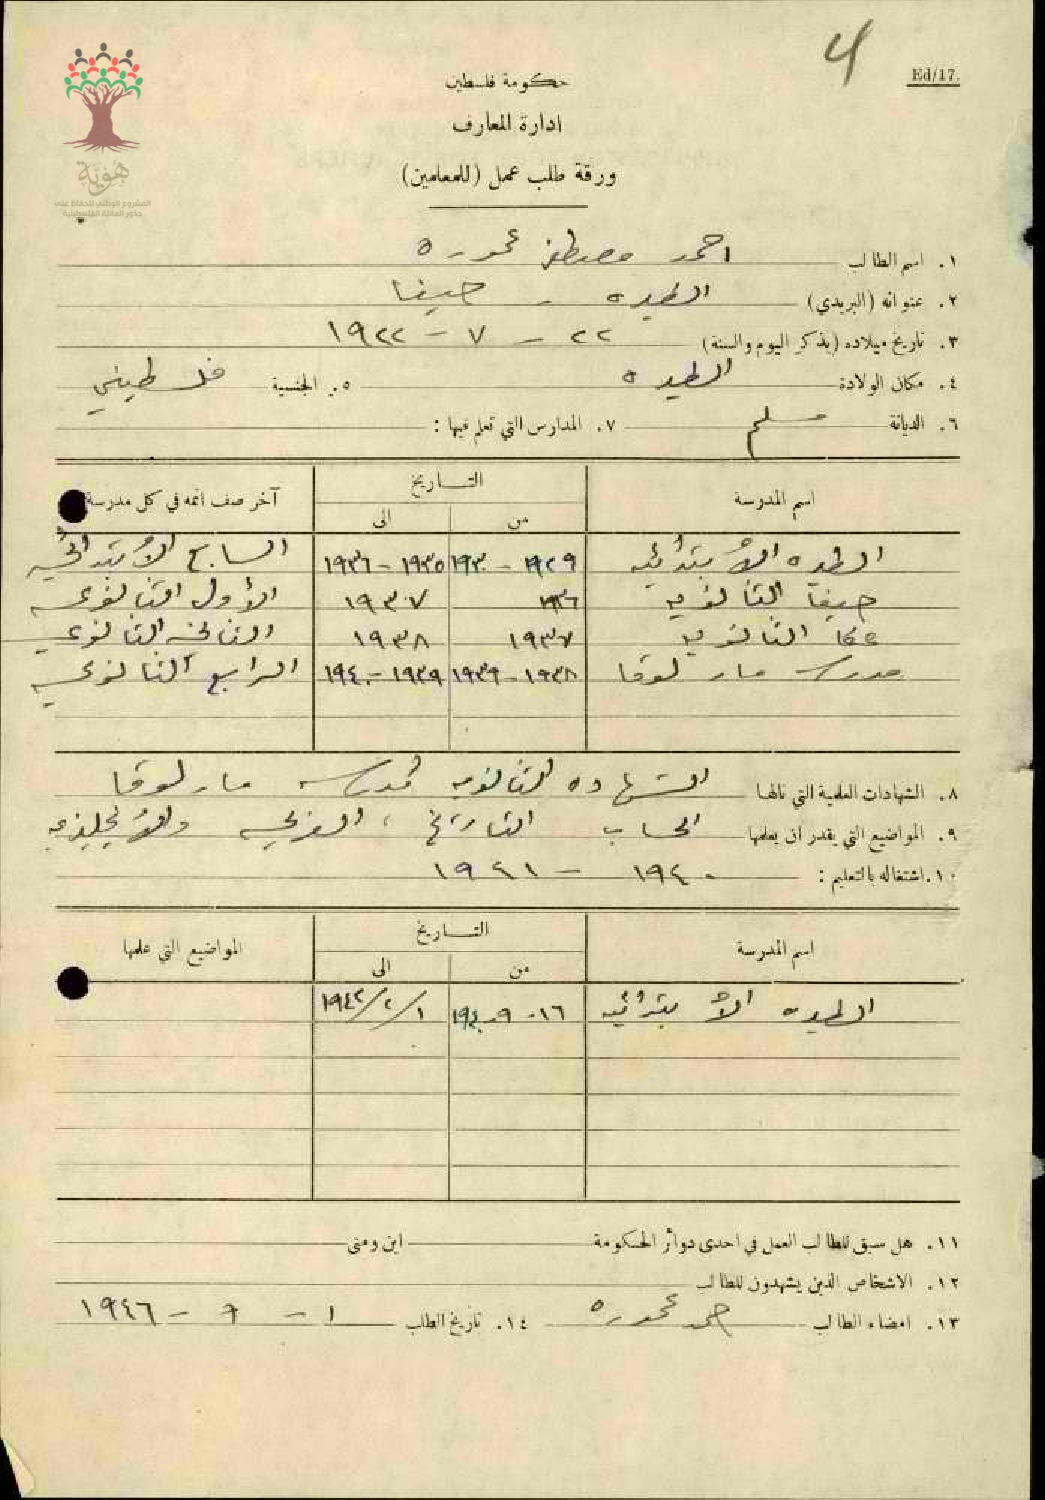 4
Ed/17.
حكومة فلسطين
ادارة المعارف
ورقة طلب عمل (للمعلمين)
هوية
المشروع الوطني للحفاظ على
جذور العائلة الفلسطينية
١. اسم الطالب احمد مصطفى عموره
٢. عنوانه (البريدي) الطيره - حيفا
٣. تاريخ ميلاده (يذكر اليوم والسنة) ٢٢ - ٧ - ١٩٢٢
٤. مكان الولادة الطيره ٥. الجنسية فلسطيني
٦. الديانة مسلم ٧. المدارس التي تعلم فيها :
اسم المدرسة التاريخ آخر صف اتمه في كل مدرسة
من الى
الطيره الأبتدائيه ١٩٢٩ - ١٩٣٠ ١٩٣٥ - ١٩٣٦ السابع الأبتدائي
حيفا الثانويه ١٩٣٦ ١٩٣٧ الأول الثانوي
عكا الثانويه ١٩٣٧ ١٩٣٨ الثاني الثانوي
مدرسة مار لوقا ١٩٣٨ - ١٩٣٩ ١٩٣٩ - ١٩٤٠ الرابع الثانوي
٨. الشهادات العلمية التي نالها الشهاده الثانويه لمدرسة مار لوقا
٩. المواضيع التي يقدر ان يعلمها الحساب التاريخ ، العربي والأنجليزيه
١٠. اشتغاله بالتعليم : ١٩٤٠ - ١٩٤١
اسم المدرسة التاريخ المواضيع التي علمها
من الى
الطيره الأبتدائيه ١٦ - ٩ - ١٩٤٠ ١/٢/١٩٤٢
١١. هل سبق للطالب العمل في احدى دوائر الحكومة اين ومتى
١٢. الاشخاص الذين يشهدون للطالب
١٣. امضاء الطالب احمد عموره ١٤. تاريخ الطلب ١ - ٩ - ١٩٤٦